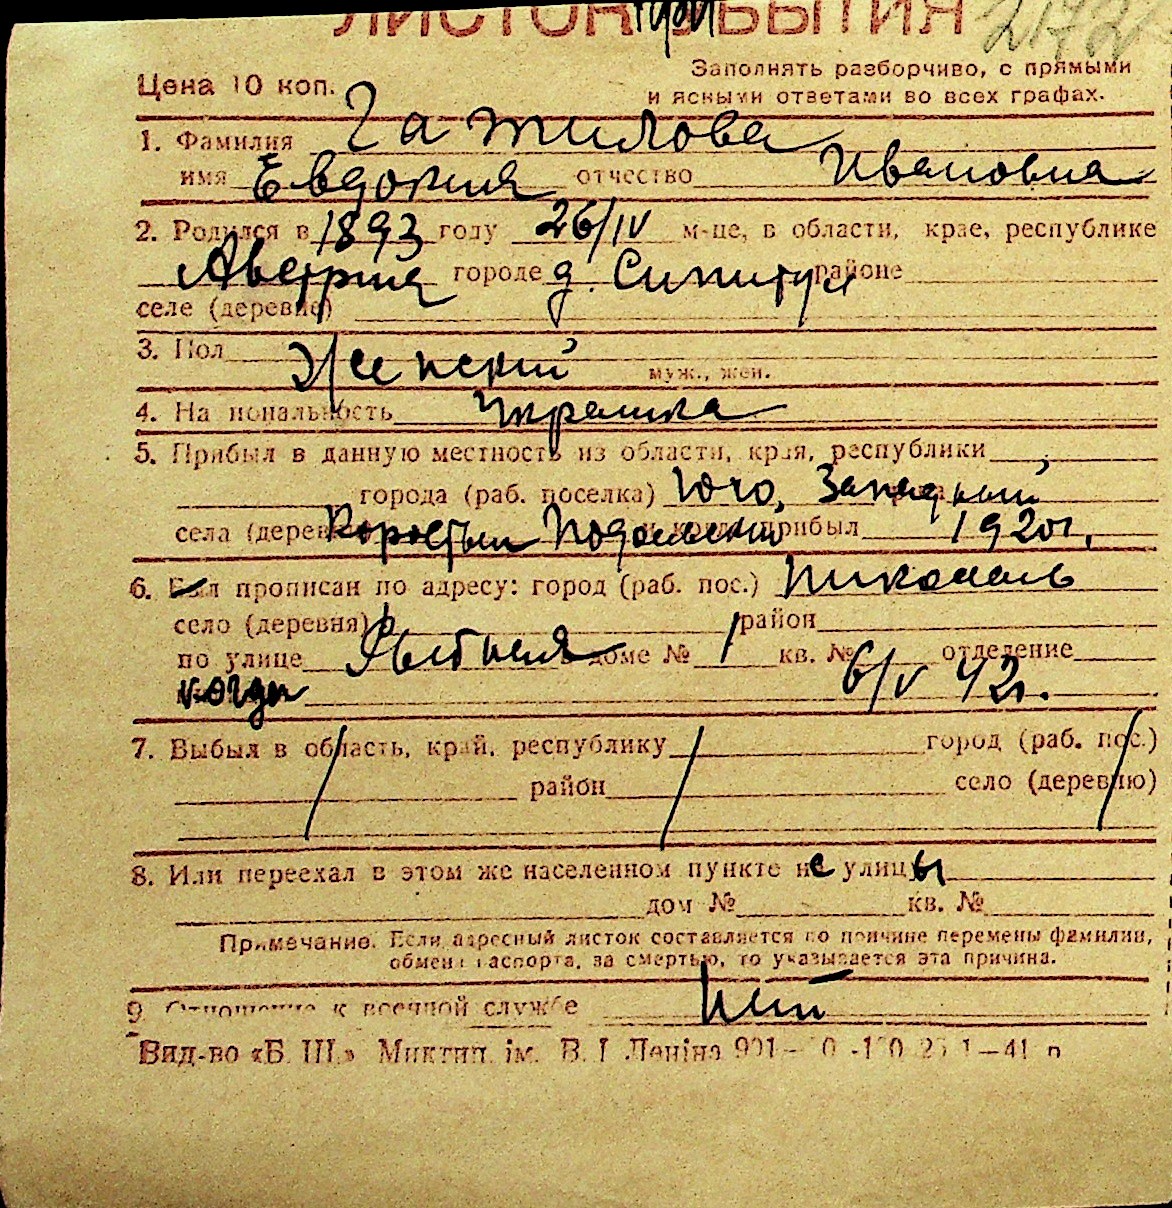 ЛИСТОК УБЫТИЯ
Цена 10 коп.
Заполнять разборчиво, с прямыми
и ясными ответами во всех графах.
1. Фамилия Гатилова
имя Евдокия отчество Ивановна
2. Родился в 1893 году 26/IV м-це, в области, крае, республике
Австрия городе д. районе
селе (деревне)
3. Пол Женский муж., жен.
4. Национальность
5. Прибыл в данную местность из области, края, республики
города (раб. поселка) Юго, Западный
села (деревни) Подольский прибыл 1920г.
6. Был прописан по адресу: город (раб. пос.) Николаев
село (деревня) район
по улице Рыбная в доме № 1 кв. № отделение
6/V 42г.
7. Выбыл в область, край, республику город (раб. пос.)
район село (деревню)
8. Или переехал в этом же населенном пункте не улицы
дом № кв. №
Примечание. Если адресный листок составляется по причине перемены фамилии,
обмена паспорта, за смертью, то указывается эта причина.
9 Отношение к военной службе Нет
Вид-во «Б. Ш.» Миктип. ім. В. І. Леніна